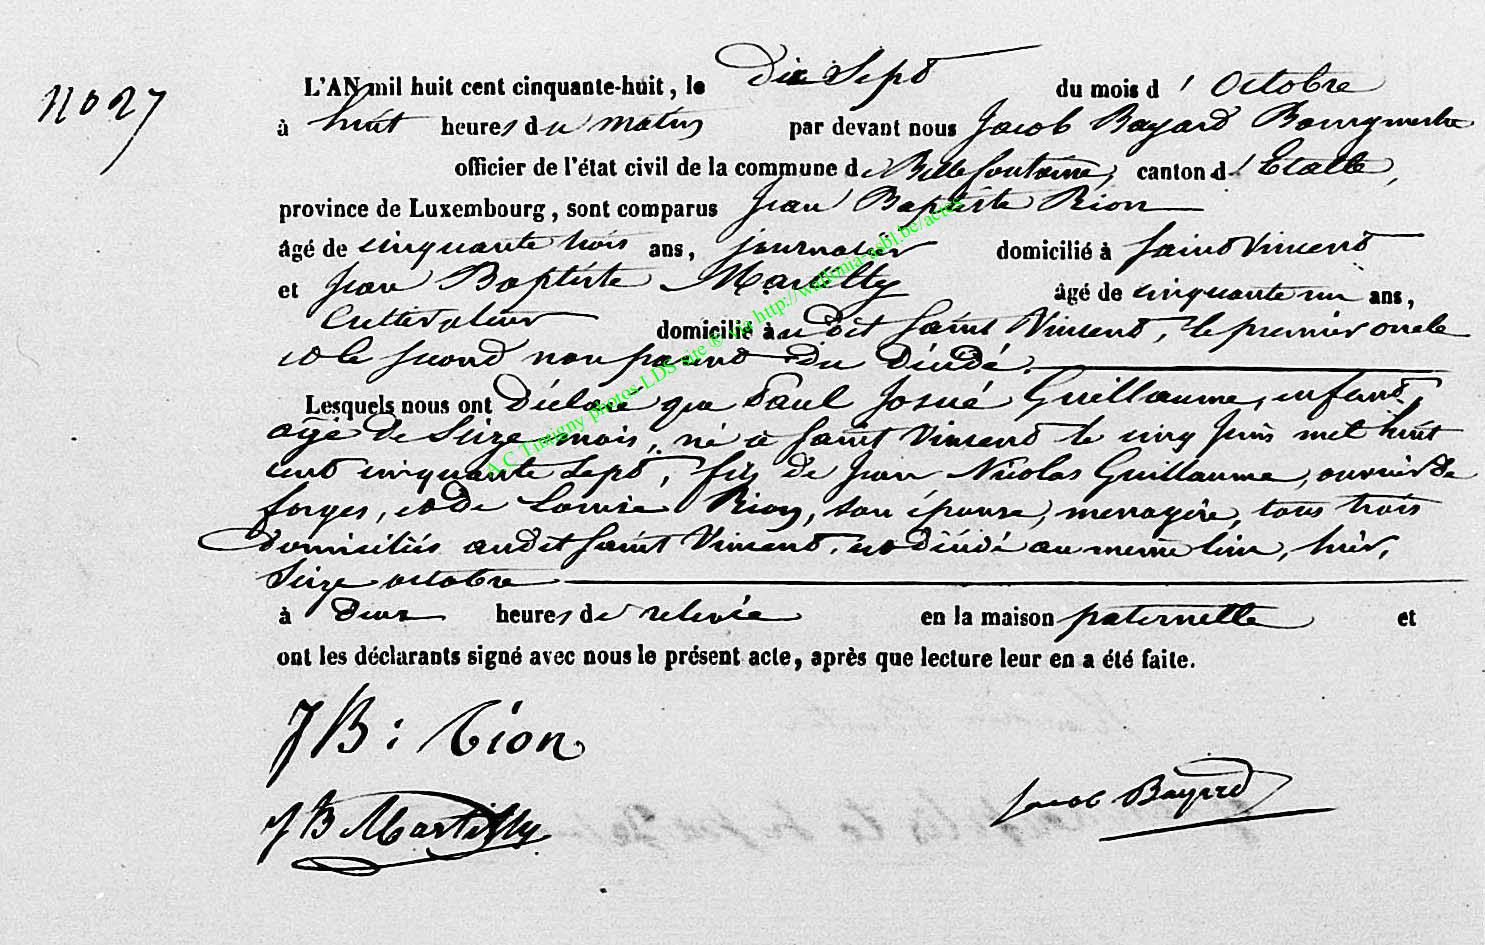 No 27
L'AN mil huit cent cinquante-huit, le Dix Sept du mois d' Octobre
à huit heures du matin par devant nous Jacob Bayard Bourgmestre
officier de l'état civil de la commune de Bellefontaine, canton d'Etalle,
province de Luxembourg, sont comparus Jean Baptiste Rion
âgé de cinquante trois ans, journalier domicilié à Saint Vincent
et Jean Baptiste Martilly âgé de cinquante un ans,
Cultivateur domicilié au dit Saint Vincent, le premier oncle
et le second non parent du Décédé.
Lesquels nous ont Déclaré que Paul Josué Guillaume, enfant,
agé de Seize mois, né à Saint Vincent le cinq Juin mil huit
cent cinquante Sept, fils de Jean Nicolas Guillaume, ouvrier de
forges, et de Louise Rion, son épouse, menagère, tous trois
Domiciliés audit Saint Vincent, est décédé au meme lieu, hier,
Seize octobre
à Deux heures de relevée en la maison paternelle et
ont les déclarants signé avec nous le présent acte, après que lecture leur en a été faite.
JB: Rion
JB Martilly
Jacob Bayard
A.C Tintigny photos LDS site ® via http://wallonia-asbl.be/actes